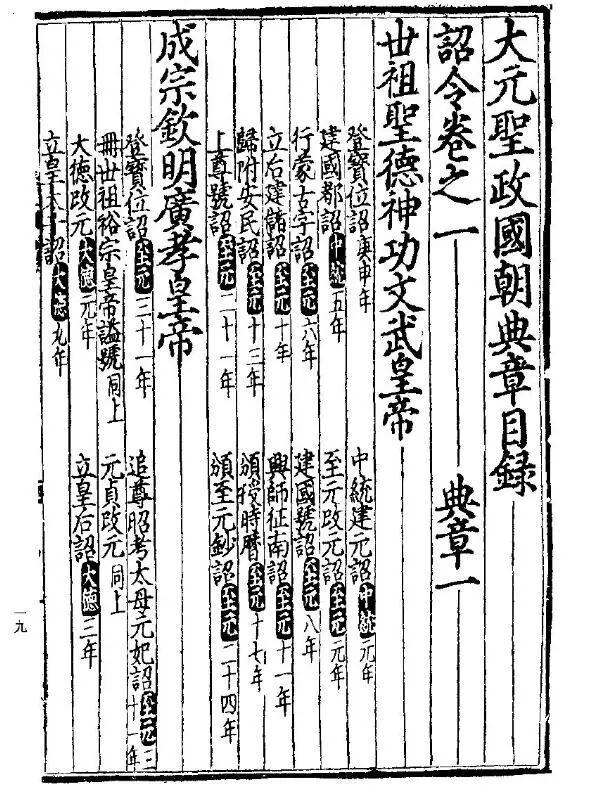 大元聖政國朝典章目録
詔令卷之一 典章一
丗祖聖德神功文武皇帝
登寶位詔庚申年 中統建元詔中統元年
建國都詔中統五年 至元改元詔至元元年
行蒙古字詔至元六年 建國號詔至元八年
立后建儲詔至元十年 興師征南詔至元十一年
歸附安民詔至元十三年 頒授時曆至元十七年
上尊號詔至元二十一年 頒至元鈔詔至元二十四年
成宗欽明廣孝皇帝
登寶位詔至元三十一年 追尊昭考太母元妃詔至元三十一年
冊丗祖裕宗皇帝謚號同上 元貞改元同上
大德改元大德元年 立皇后詔大德三年
立皇太子詔大德九年
一九